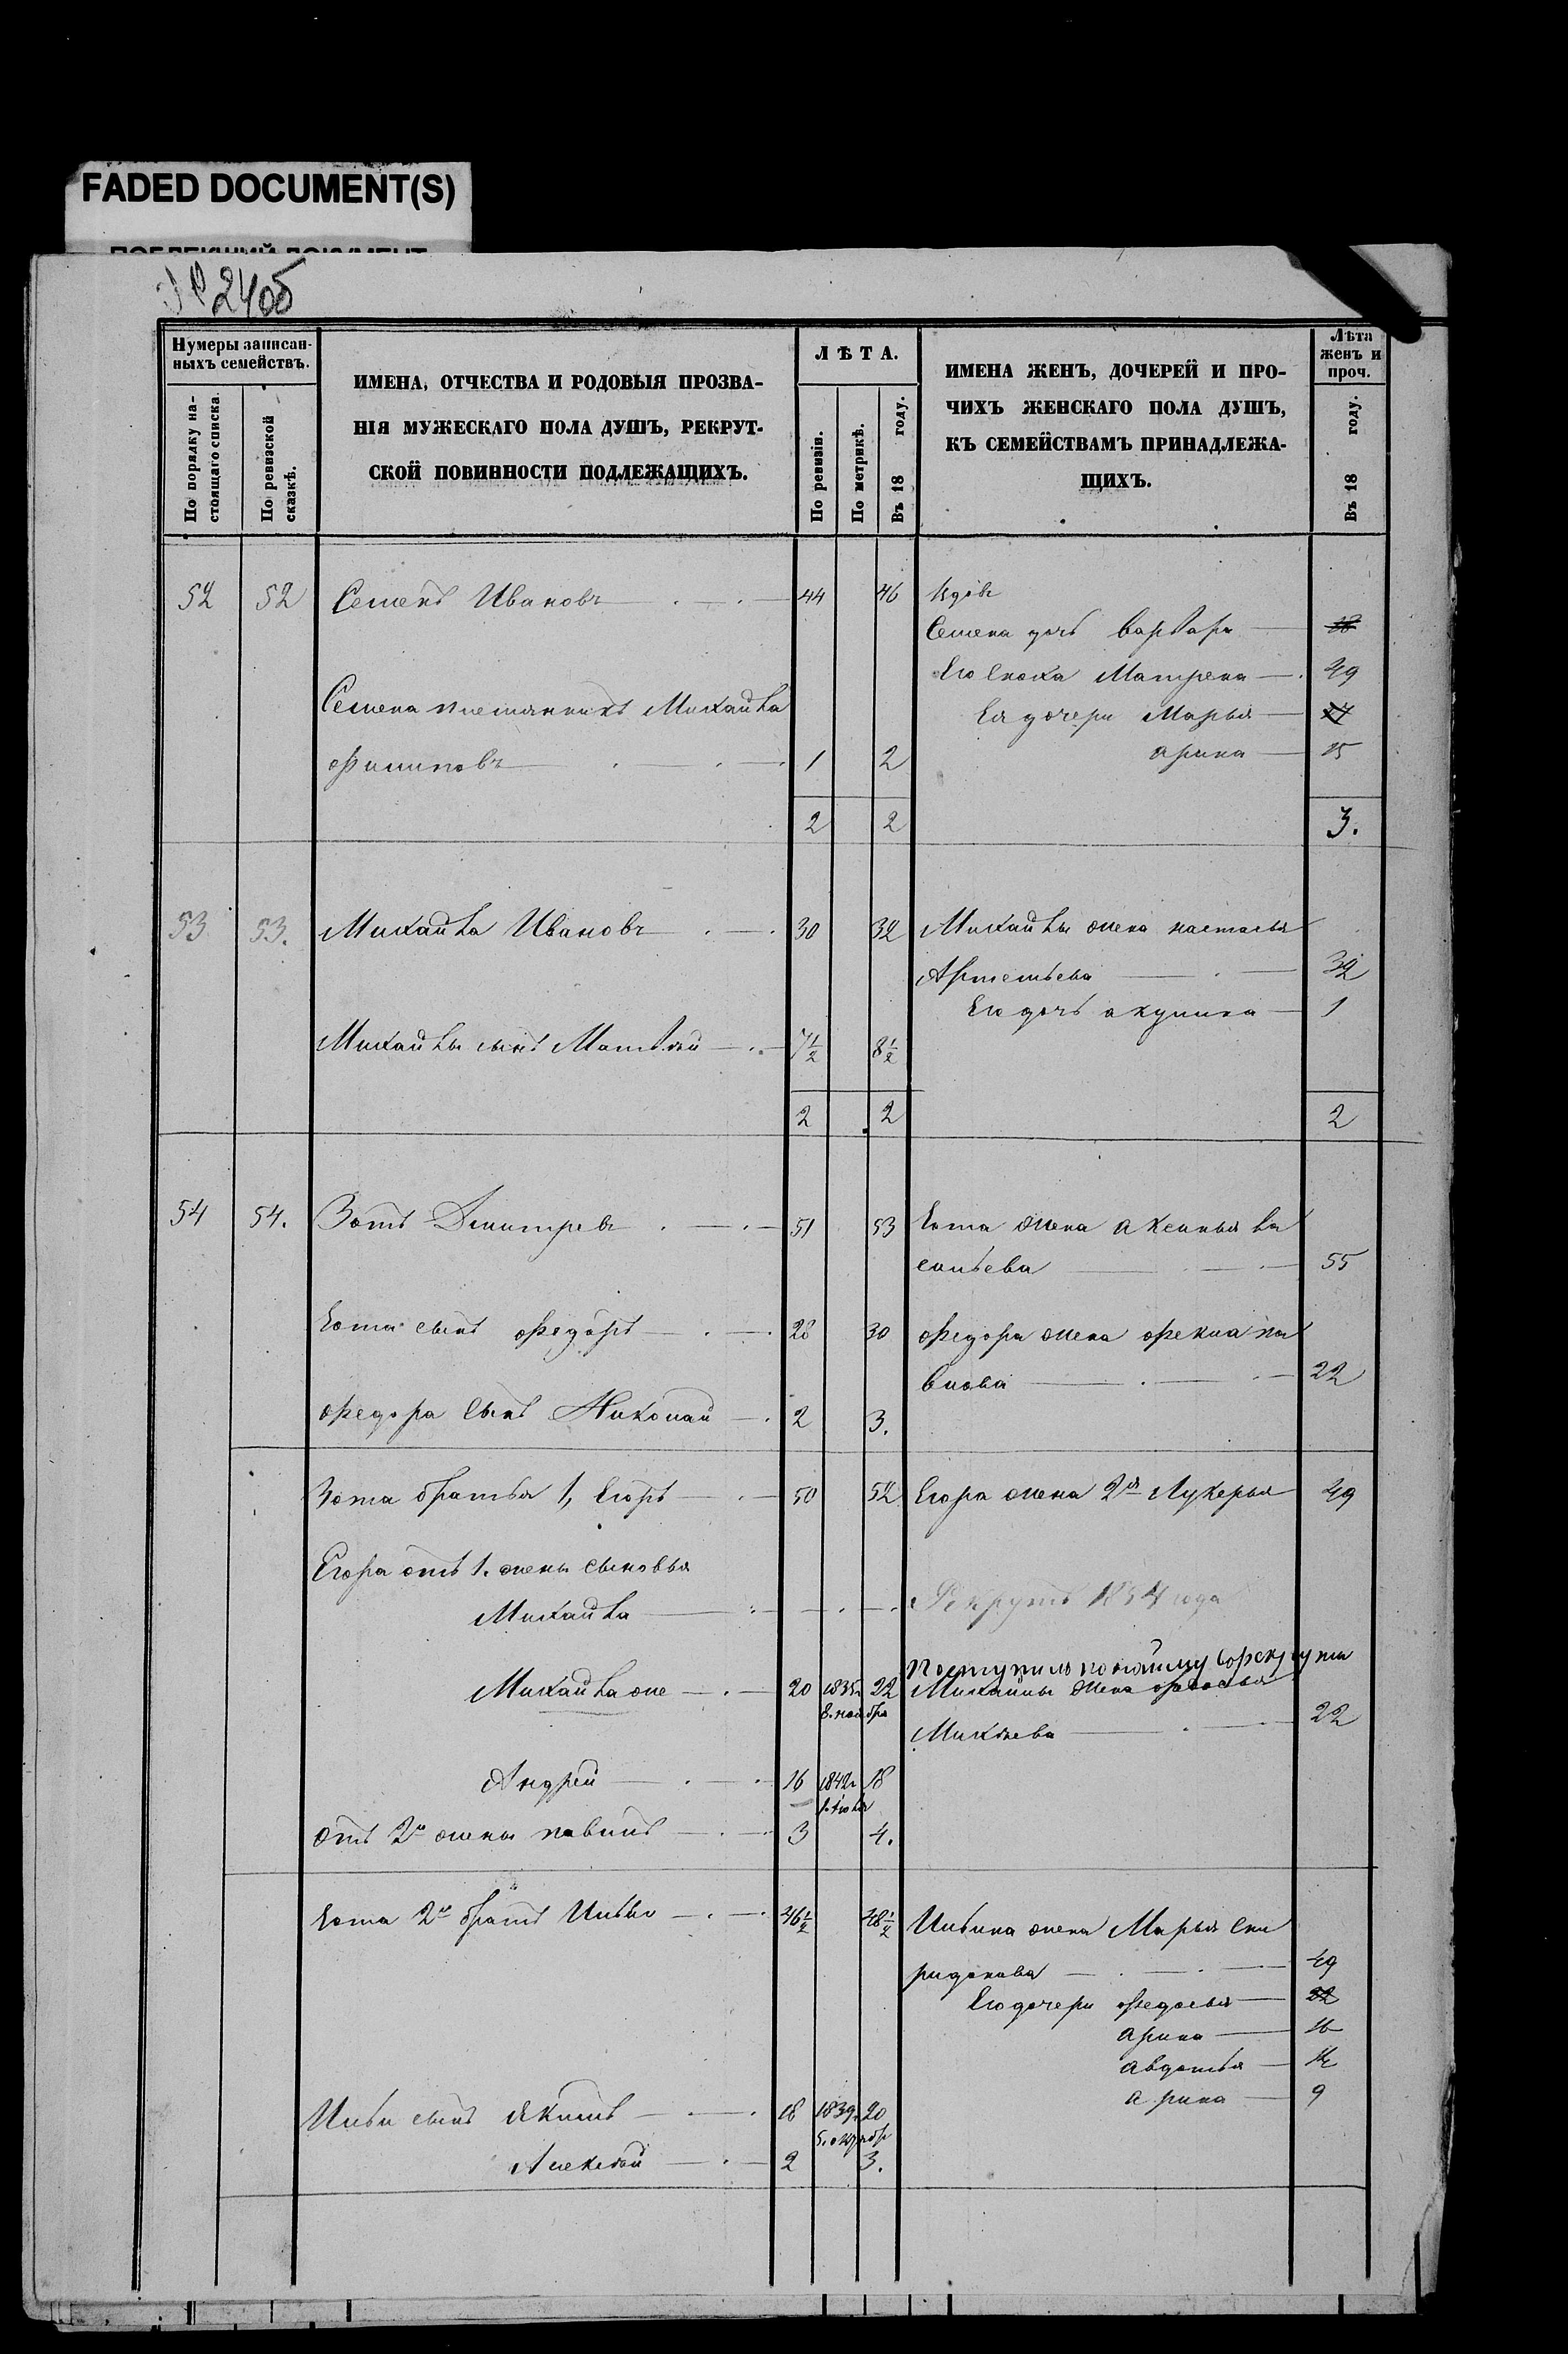 FADED DOCUMENT(S)
№ 2405
Нумеры записан-
ныхъ семействъ.
По порядку на-
стоящаго списка.
По ревизской
сказкѣ.
ИМЕНА, ОТЧЕСТВА И РОДОВЫЯ ПРОЗВА-
НІЯ МУЖЕСКАГО ПОЛА ДУШЪ, РЕКРУТ-
СКОЙ ПОВИННОСТИ ПОДЛЕЖАЩИХЪ.
ЛѢТА.
По ревизіи.
По метрикѣ.
Въ 18 году.
ИМЕНА ЖЕНЪ, ДОЧЕРЕЙ И ПРО-
ЧИХЪ ЖЕНСКАГО ПОЛА ДУШЪ,
КЪ СЕМЕЙСТВАМЪ ПРИНАДЛЕЖА-
ЩИХЪ.
Лѣта
женъ и
проч.
Въ 18 году.
52 52 Семенъ Ивановъ 44 46 вдовъ
Семена дочь варвара 18
Его сноха Матрена 49
Семена племянникъ Михайла
Ея дочери Марья
филиповъ 1 2
арина 15
2 2 3.
53 53. Михайла Ивановъ 30 32 Михайлы жена настасья
Артемьева 32
Его дочь акулина 1
Михайлы сынъ Матвѣй 7½ 8½
2 2 2
54 54. Зотъ Дмитревъ 51 53 Зота жена аксинья ва
сильева 55
Зота сынъ федоръ 28 30 федора жена фекла па
влова 22
федора сынъ Николай 2 3.
Зота братья 1, Егоръ 50 52 Егора жена 2я Лукерья 49
Егора отъ 1. жены сыновья
Михайла Рекрутъ 1854 года
Поступилъ по найму въ рекруты
Михайла же 20 1835г. 22 Михайлы жена федосья
8. ноября
22
Андрей 16 1842г. 18
отъ 2й жены павилъ 3 4.
Зота 2й братъ Илья 46½ 48½ Ильина жена Марья Спи
ридонова 49
Его дочери федосья 22
арина 16
авдотья 14
арина 9
Ильи сынъ Якимъ 18 1839г. 20
5. октябр
Алексѣй 2 3.